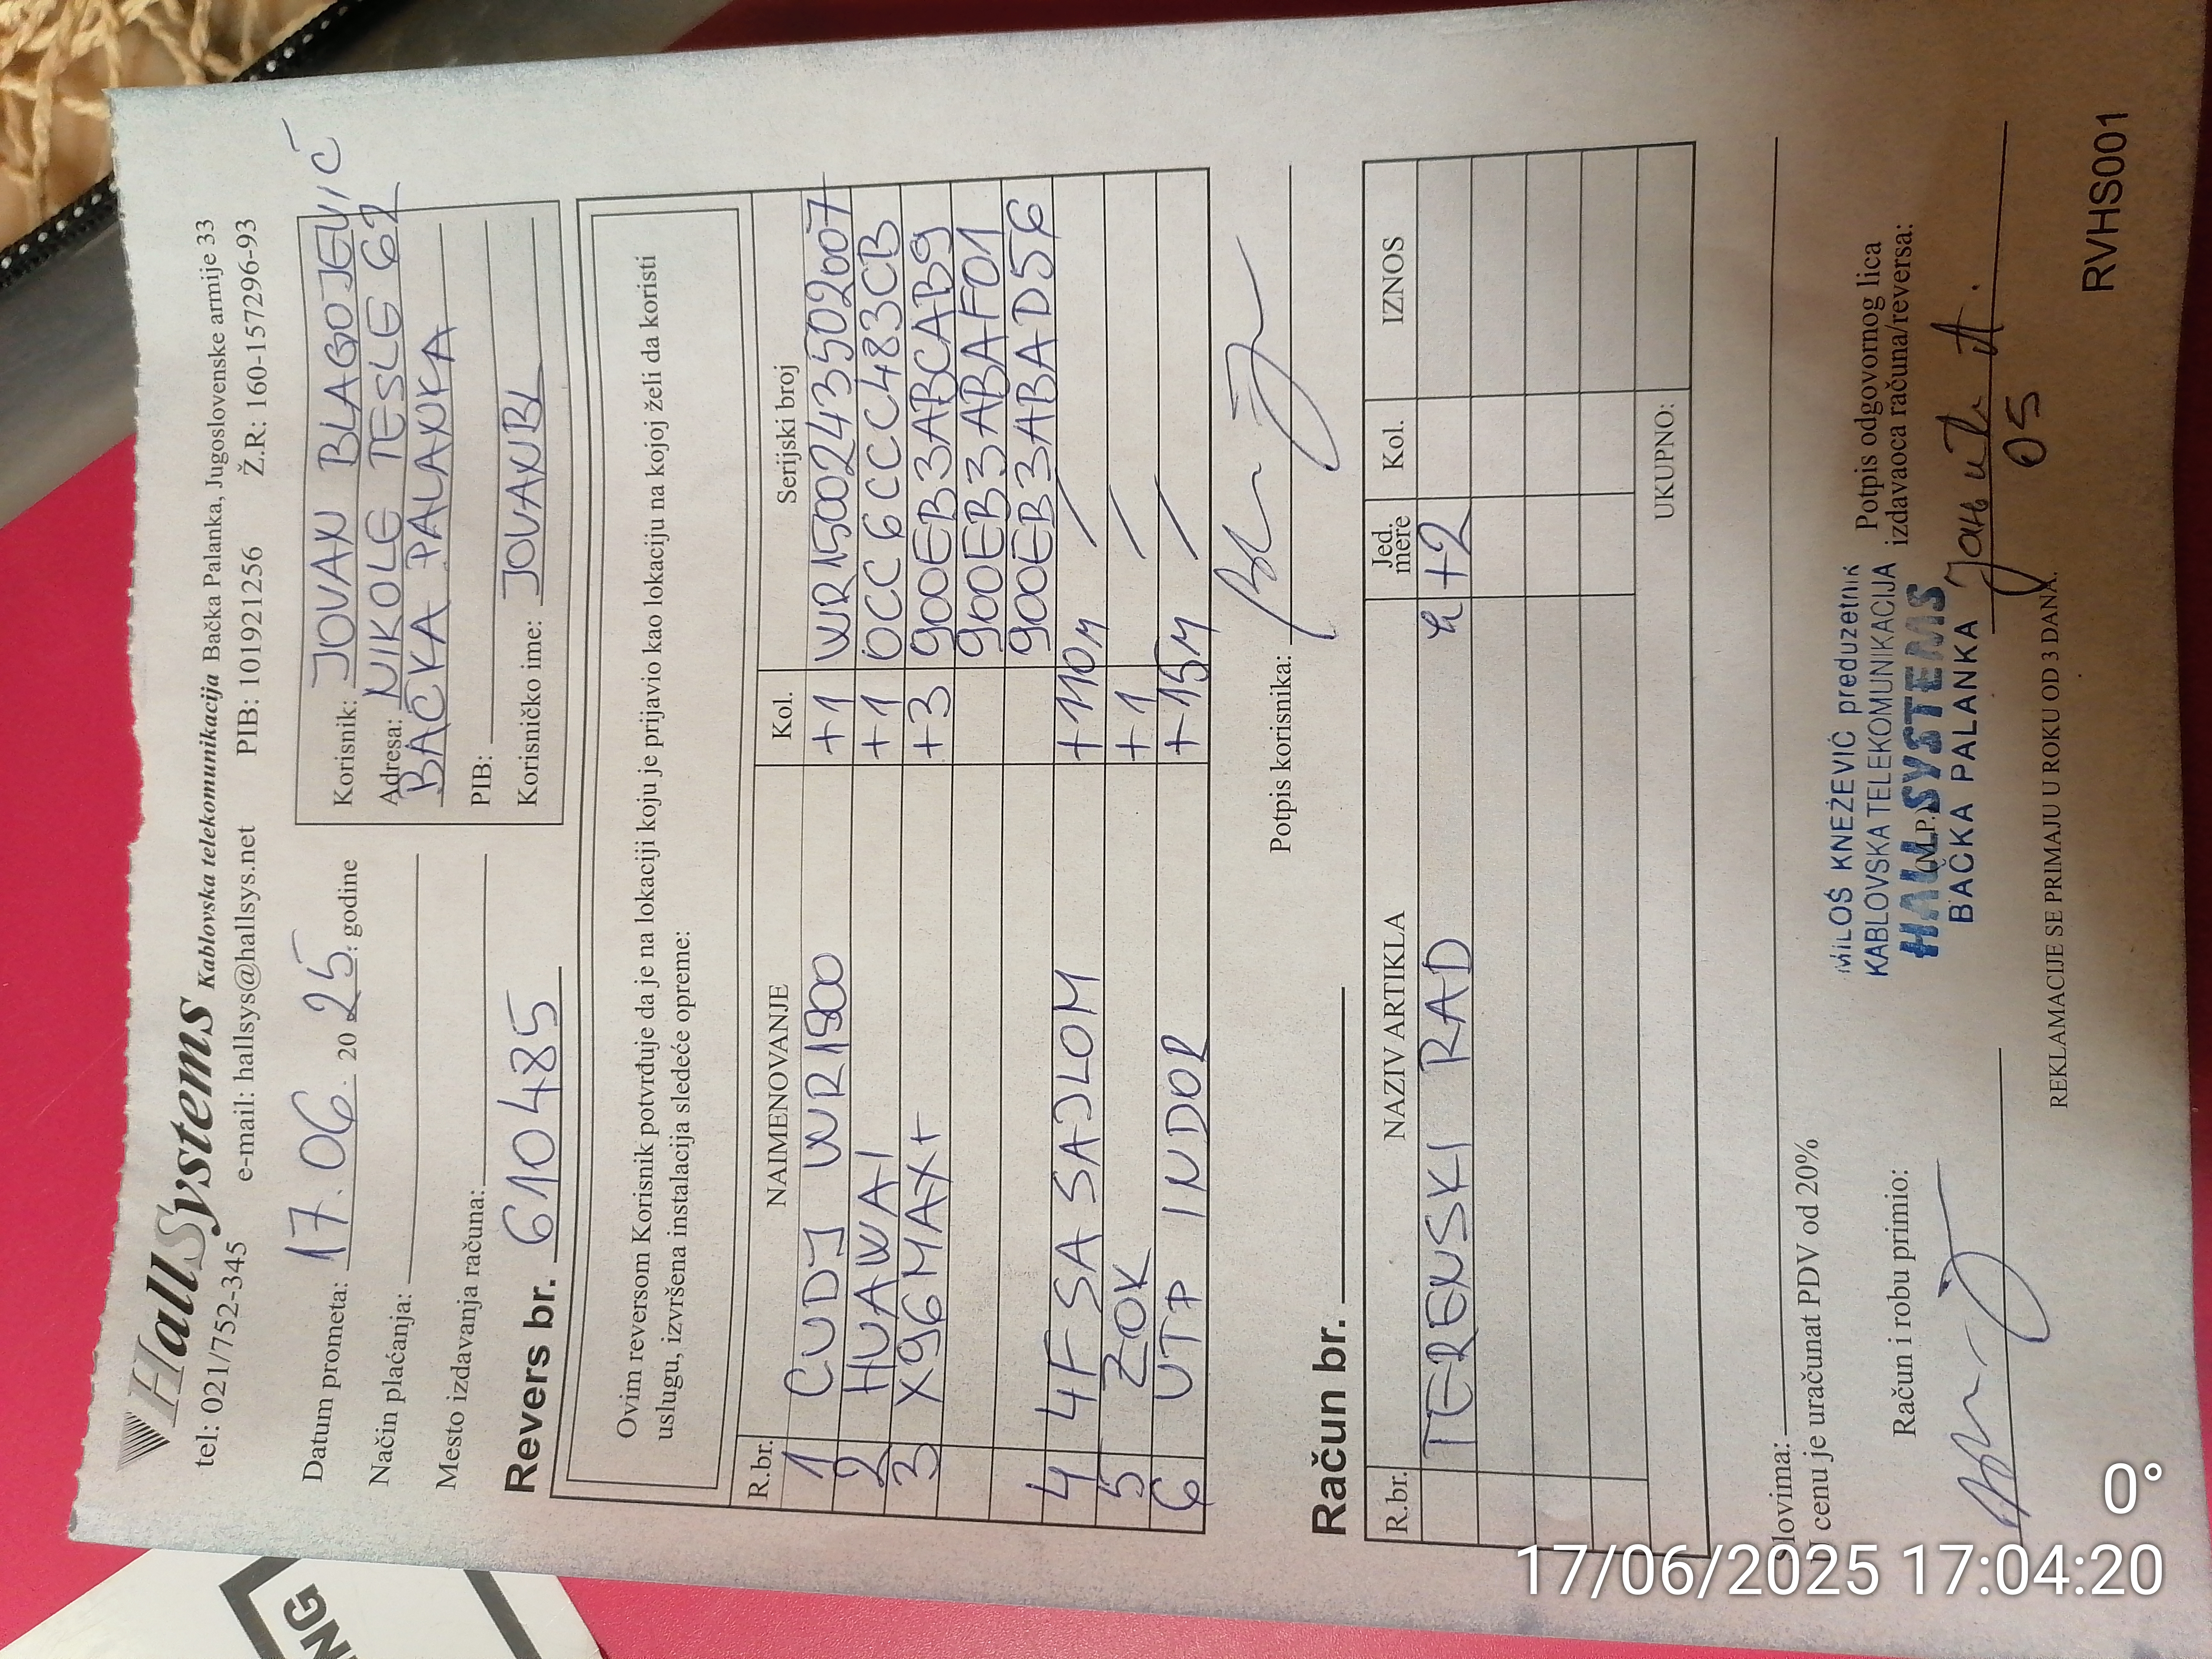 HallSystems Kablovska telekomunikacija Bačka Palanka, Jugoslovenske armije 33
tel: 021/752-345 e-mail: hallsys@hallsys.net PIB: 101921256 Ž.R: 160-157296-93
Datum prometa: 17.06. 20 25. godine
Način plaćanja:
Mesto izdavanja računa:
Revers br. 610485
Korisnik: JOVAN BLAGOJEVIĆ
Adresa: NIKOLE TESLE 62
BAČKA PALANKA
PIB:
Korisničko ime: JOVANBL
Ovim reversom Korisnik potvrđuje da je na lokaciji koju je prijavio kao lokaciju na kojoj želi da koristi
uslugu, izvršena instalacija sledeće opreme:
R.br. NAIMENOVANJE Kol. Serijski broj
1 CUDJ WR1500 +1 WR1500243502007
2 HUAWAI +1 0CC6CCC483CB
3 X96MAX+ +3 900EB3ABCAB9
900EB3ABAF01
900EB3ABAD56
4 4F SA SAJLOM +110M /
5 ZOK +1 /
6 UTP INDOR +15M /
Potpis korisnika:
Račun br.
R.br. NAZIV ARTIKLA Jed. mere Kol. IZNOS
TERENSKI RAD +2
UKUPNO:
Slovima:
U cenu je uračunat PDV od 20%
Račun i robu primio:
MILOŠ KNEŽEVIĆ preduzetnik
KABLOVSKA TELEKOMUNIKACIJA
HALL SYSTEMS
M.P.
BAČKA PALANKA
Potpis odgovornog lica
izdavaoca računa/reversa:
05
REKLAMACIJE SE PRIMAJU U ROKU OD 3 DANA.
RVHS001
0°
17/06/2025 17:04:20